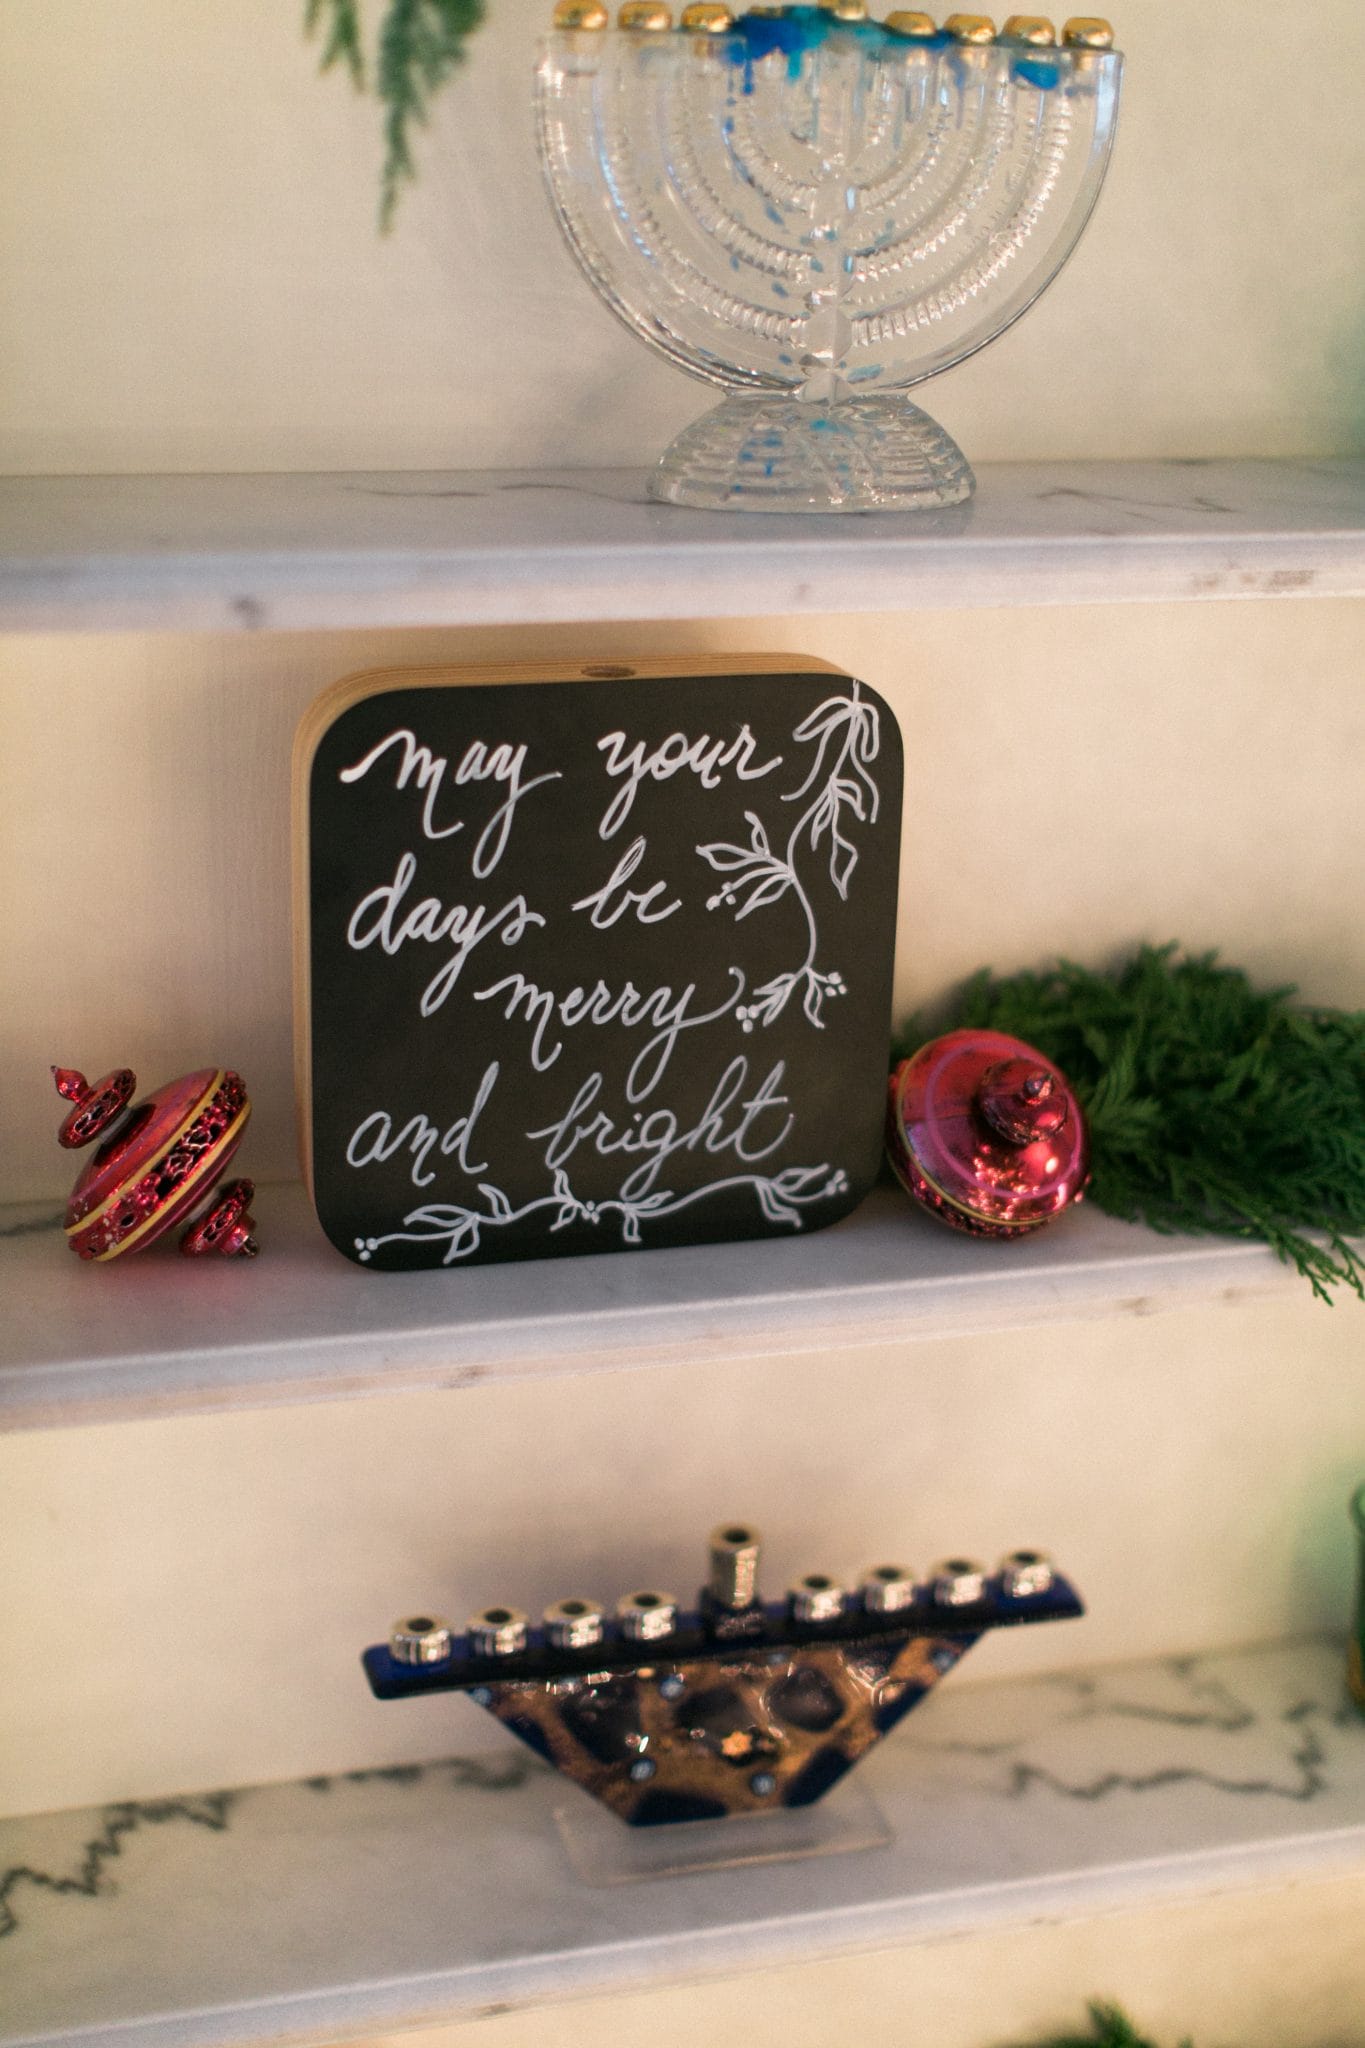 may your
days be
merry
and bright